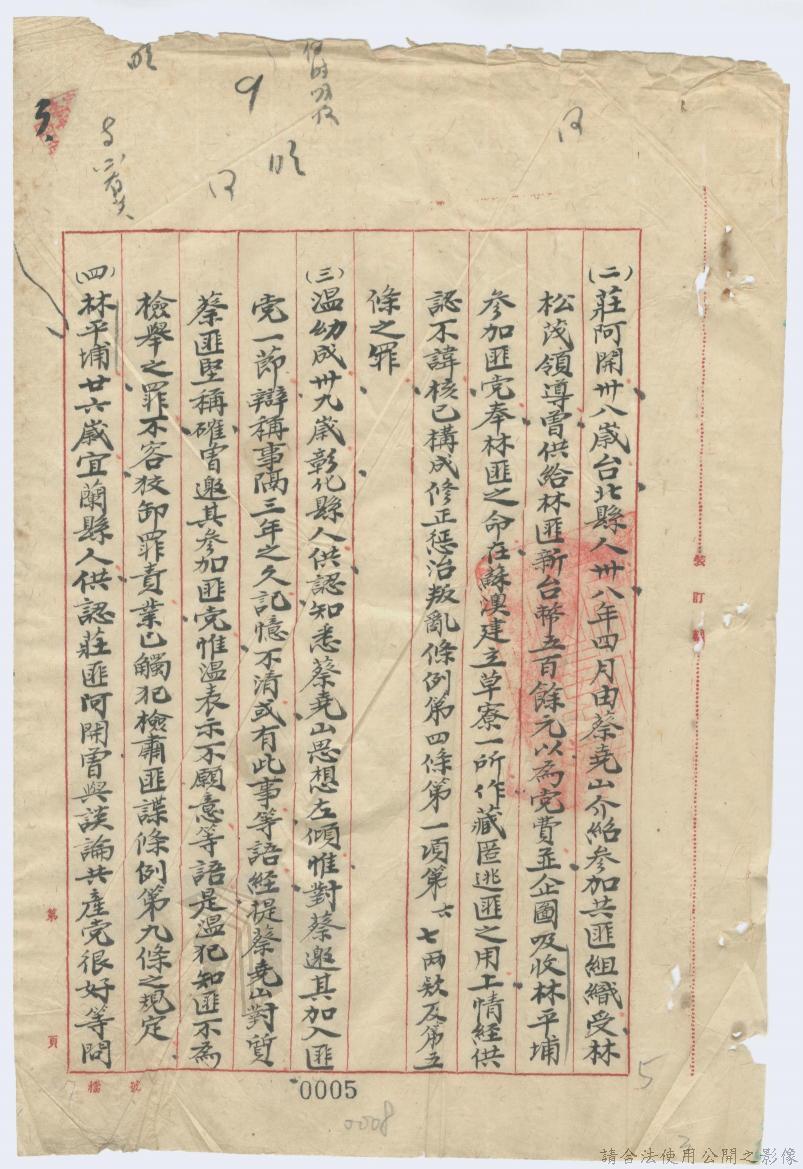 (二)莊阿開卅八歲台北縣人卅八年四月由蔡堯山介紹參加共匪組織受林
松茂領導曾供給林匪新台幣五百餘元以為党費並企圖吸收林平埔
參加匪党奉林匪之命在蘇澳建立草寮一所作藏匿逃匪之用上情經供
認不諱核已構成修正惩治叛亂條例第四條第一項第六七兩欵及第五
條之罪
(三)溫幼成卅九歲彰化縣人供認知悉蔡堯山思想左傾惟對蔡邀其加入匪
党一節辯稱事隔三年之久記憶不清或有此事等語經提蔡堯山對質
蔡匪堅稱確曾邀其參加匪党惟溫表示不願意等語是溫犯知匪不為
檢舉之罪不容狡卸罪責業已觸犯檢肅匪諜條例第九條之規定
(四)林平埔廿六歲宜蘭縣人供認莊匪阿開曾與談論共產党很好等問
裝訂
第 頁
檔 號
0005
0008
5
請合法使用公開之影像